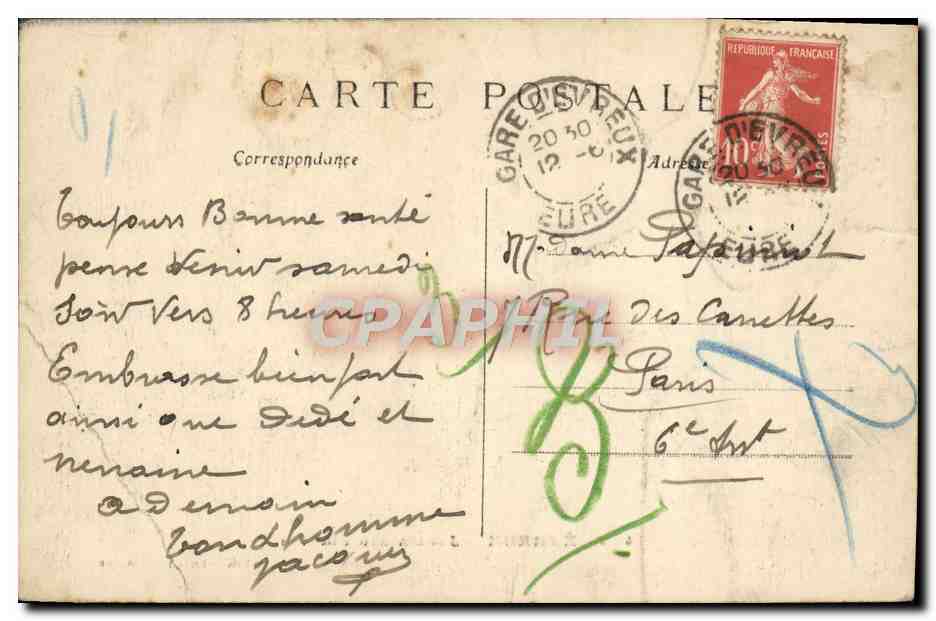 CARTE POSTALE
REPUBLIQUE FRANÇAISE
10 c POSTES
GARE D'EVREUX
20 30
12 -6
EURE
GARE D'EVREU
20 30
12
EURE
Correspondance
Adresse
Toujours Bonne santé
pense venir samedi
Soir Vers 8 heures
Embrasse bien fort
ainsi que Dédé et
A Demain
Jacques
Madame
Rue des Canettes
Paris
6e Arrt
CPAPHIL